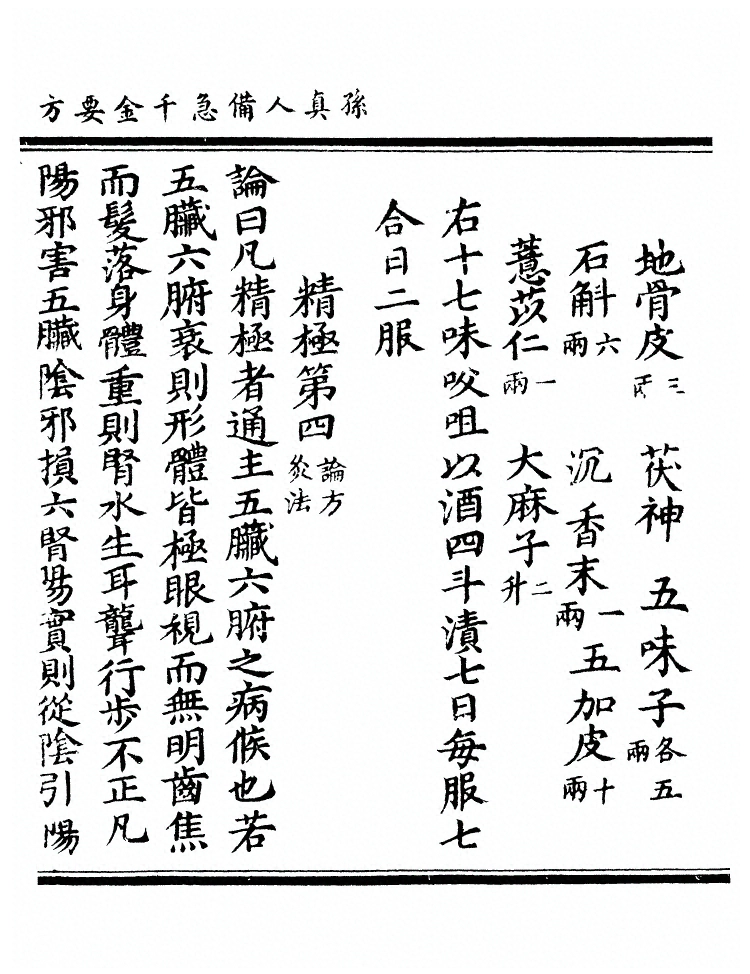 孫真人備急千金要方
地骨皮三兩 茯神 五味子各五兩
石斛六兩 沉香末一兩 五加皮十兩
薏苡仁一兩 大麻子二升
右十七味㕮咀以酒四斗漬七日每服七
合日二服
精極第四論方灸法
論曰凡精極者通主五臟六腑之病候也若
五臟六腑衰則形體皆極眼視而無明齒焦
而髮落身體重則腎水生耳聾行步不正凡
陽邪害五臟陰邪損六腎陽實則從陰引陽